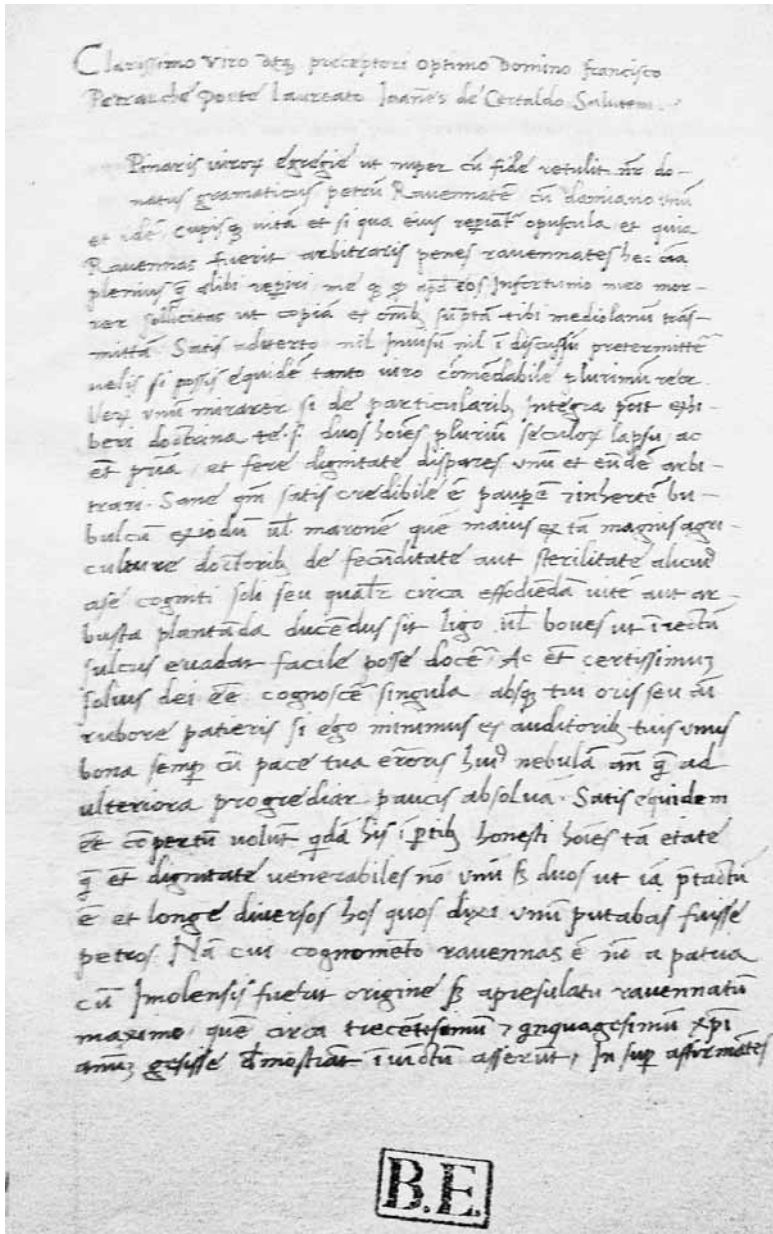 Clarissimo viro atqȝ preceptori optimo Domino francisco
Petrarche Poete Laureato Joan̄es de Certaldo Salutem
Pinaris virorȝ egregie ut nuper cū fide retulit nr̄ do-
natus gramaticus petrū Ravennatē cū damiano vnū
et idē cupisqȝ vitā et si qua eius reperiāt opuscula et quia
Ravennas fuerit arbitraris penes ravennates hec oīa
plenius qȝ alibi repiri me infortunio meo mor-
rer sollicitas ut copiā et sūptā tibi mediolanū trās-
mittā Satis adverto nil Inuisū nil ī discussū pretermitte
uelis si possis equidē tanto uiro cōmēdabile plurimū reor
vnū mirarer si de particularibȝ integra exhi-
beri doctrina te duos hoīes pluriū seculorȝ lapsu ac
et fere dignitate dispares vnū et eūdē arbi-
trari. Sane qm̄ satis credibile ē paupē inhertē bu-
bulcū maronē que tā magnus agri-
culture doctoribȝ de fecūditate aut sterilitate alicui9
cogniti soli seu circa effodiēdā uitē aut ar-
busta plantāda ducēdus sit ligo ul̄ boues ut ī rectū
sulcus euadat facile posse docē Ac et̄ certissimuȝ
solius dei eē cognoscē singula absqȝ tui oris seu
rubore patieris si ego minimus ex auditoribȝ tuis vnus
bona semp cū pace tua erroris hui9 nebulā an̄ qȝ ad
ulteriora progrediar paucis absoluā. Satis equidem
et cōpertū uolūt qdā his ī ptibȝ honesti hoīes tā etate
qȝ et̄ dignitate uenerabiles nō vnū sȝ duos ut iā ptactū
ē et longe diuersos hos quos dixi vnū putabas fuisse
petros. Nā cui cognomēto rauennas ē nō a patria
cū Imolensis fuerit origine sȝ apresulatu rauennatū
maximo quē circa trecētisimū ⁊ qnquagesimū xp̄i
annuȝ gesisse dēmostrāt īuictū asserūt, In sup affirmātes
B.E.